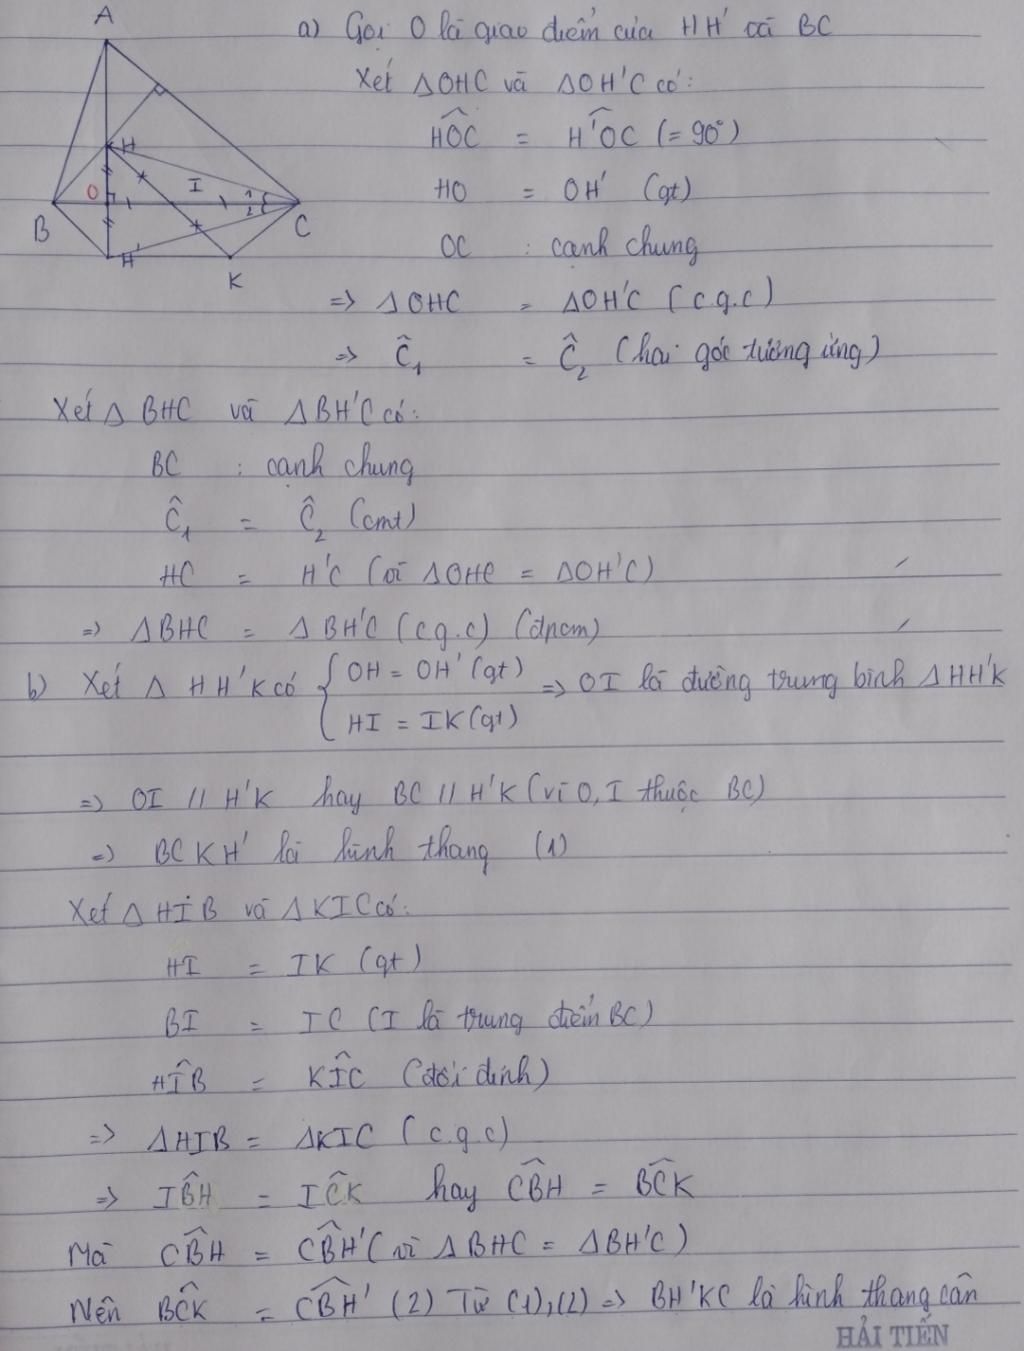 A
H
O
I
1
2
B
C
H'
K
a) Gọi O là giao điểm của HH' và BC
Xét ΔOHC và ΔOH'C có:
HÔC = H'ÔC (= 90°)
HO = OH' (gt)
OC : cạnh chung
=> ΔOHC = ΔOH'C (c.g.c)
=> Ĉ₁ = Ĉ₂ (hai góc tương ứng)
Xét Δ BHC và ΔBH'C có:
BC : cạnh chung
Ĉ₁ = Ĉ₂ (cmt)
HC = H'C (vì ΔOHC = ΔOH'C)
=> ΔBHC = ΔBH'C (c.g.c) (đpcm)
b) Xét Δ HH'K có { OH = OH' (gt) => OI là đường trung bình ΔHH'K
HI = IK (gt)
=> OI // H'K hay BC // H'K (vì O, I thuộc BC)
=> BCKH' là hình thang (1)
Xét Δ HIB và ΔKIC có:
HI = IK (gt)
BI = IC (I là trung điểm BC)
HÎB = KÎC (đối đỉnh)
=> ΔHIB = ΔKIC (c.g.c)
=> IB̂H = IĈK hay CB̂H = BĈK
Mà CB̂H = CB̂H' (vì ΔBHC = ΔBH'C)
Nên BĈK = CB̂H' (2) Từ (1), (2) => BH'KC là hình thang cân
HẢI TIẾN